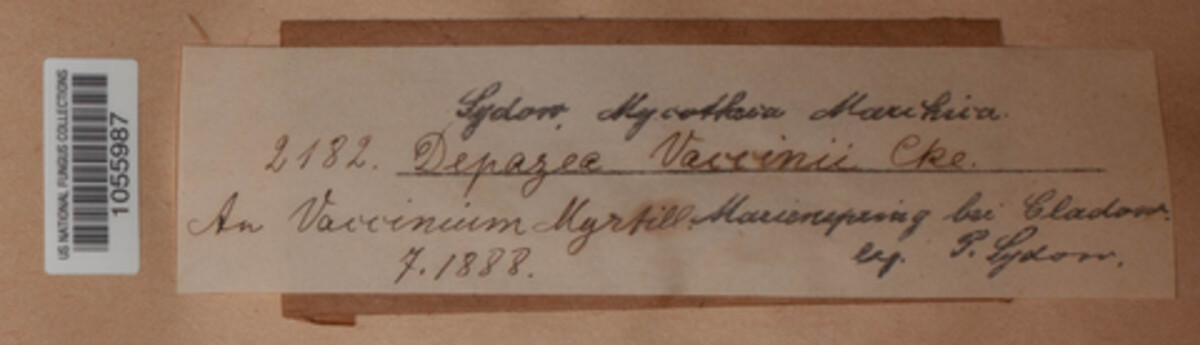 US NATIONAL FUNGUS COLLECTIONS
1055987
Sydow, Mycotheca Marchica.
2182. Depazea Vaccinii Cke.
An Vaccinium Myrtill. Marienspring bei Cladow.
7. 1888. leg. P. Sydow.